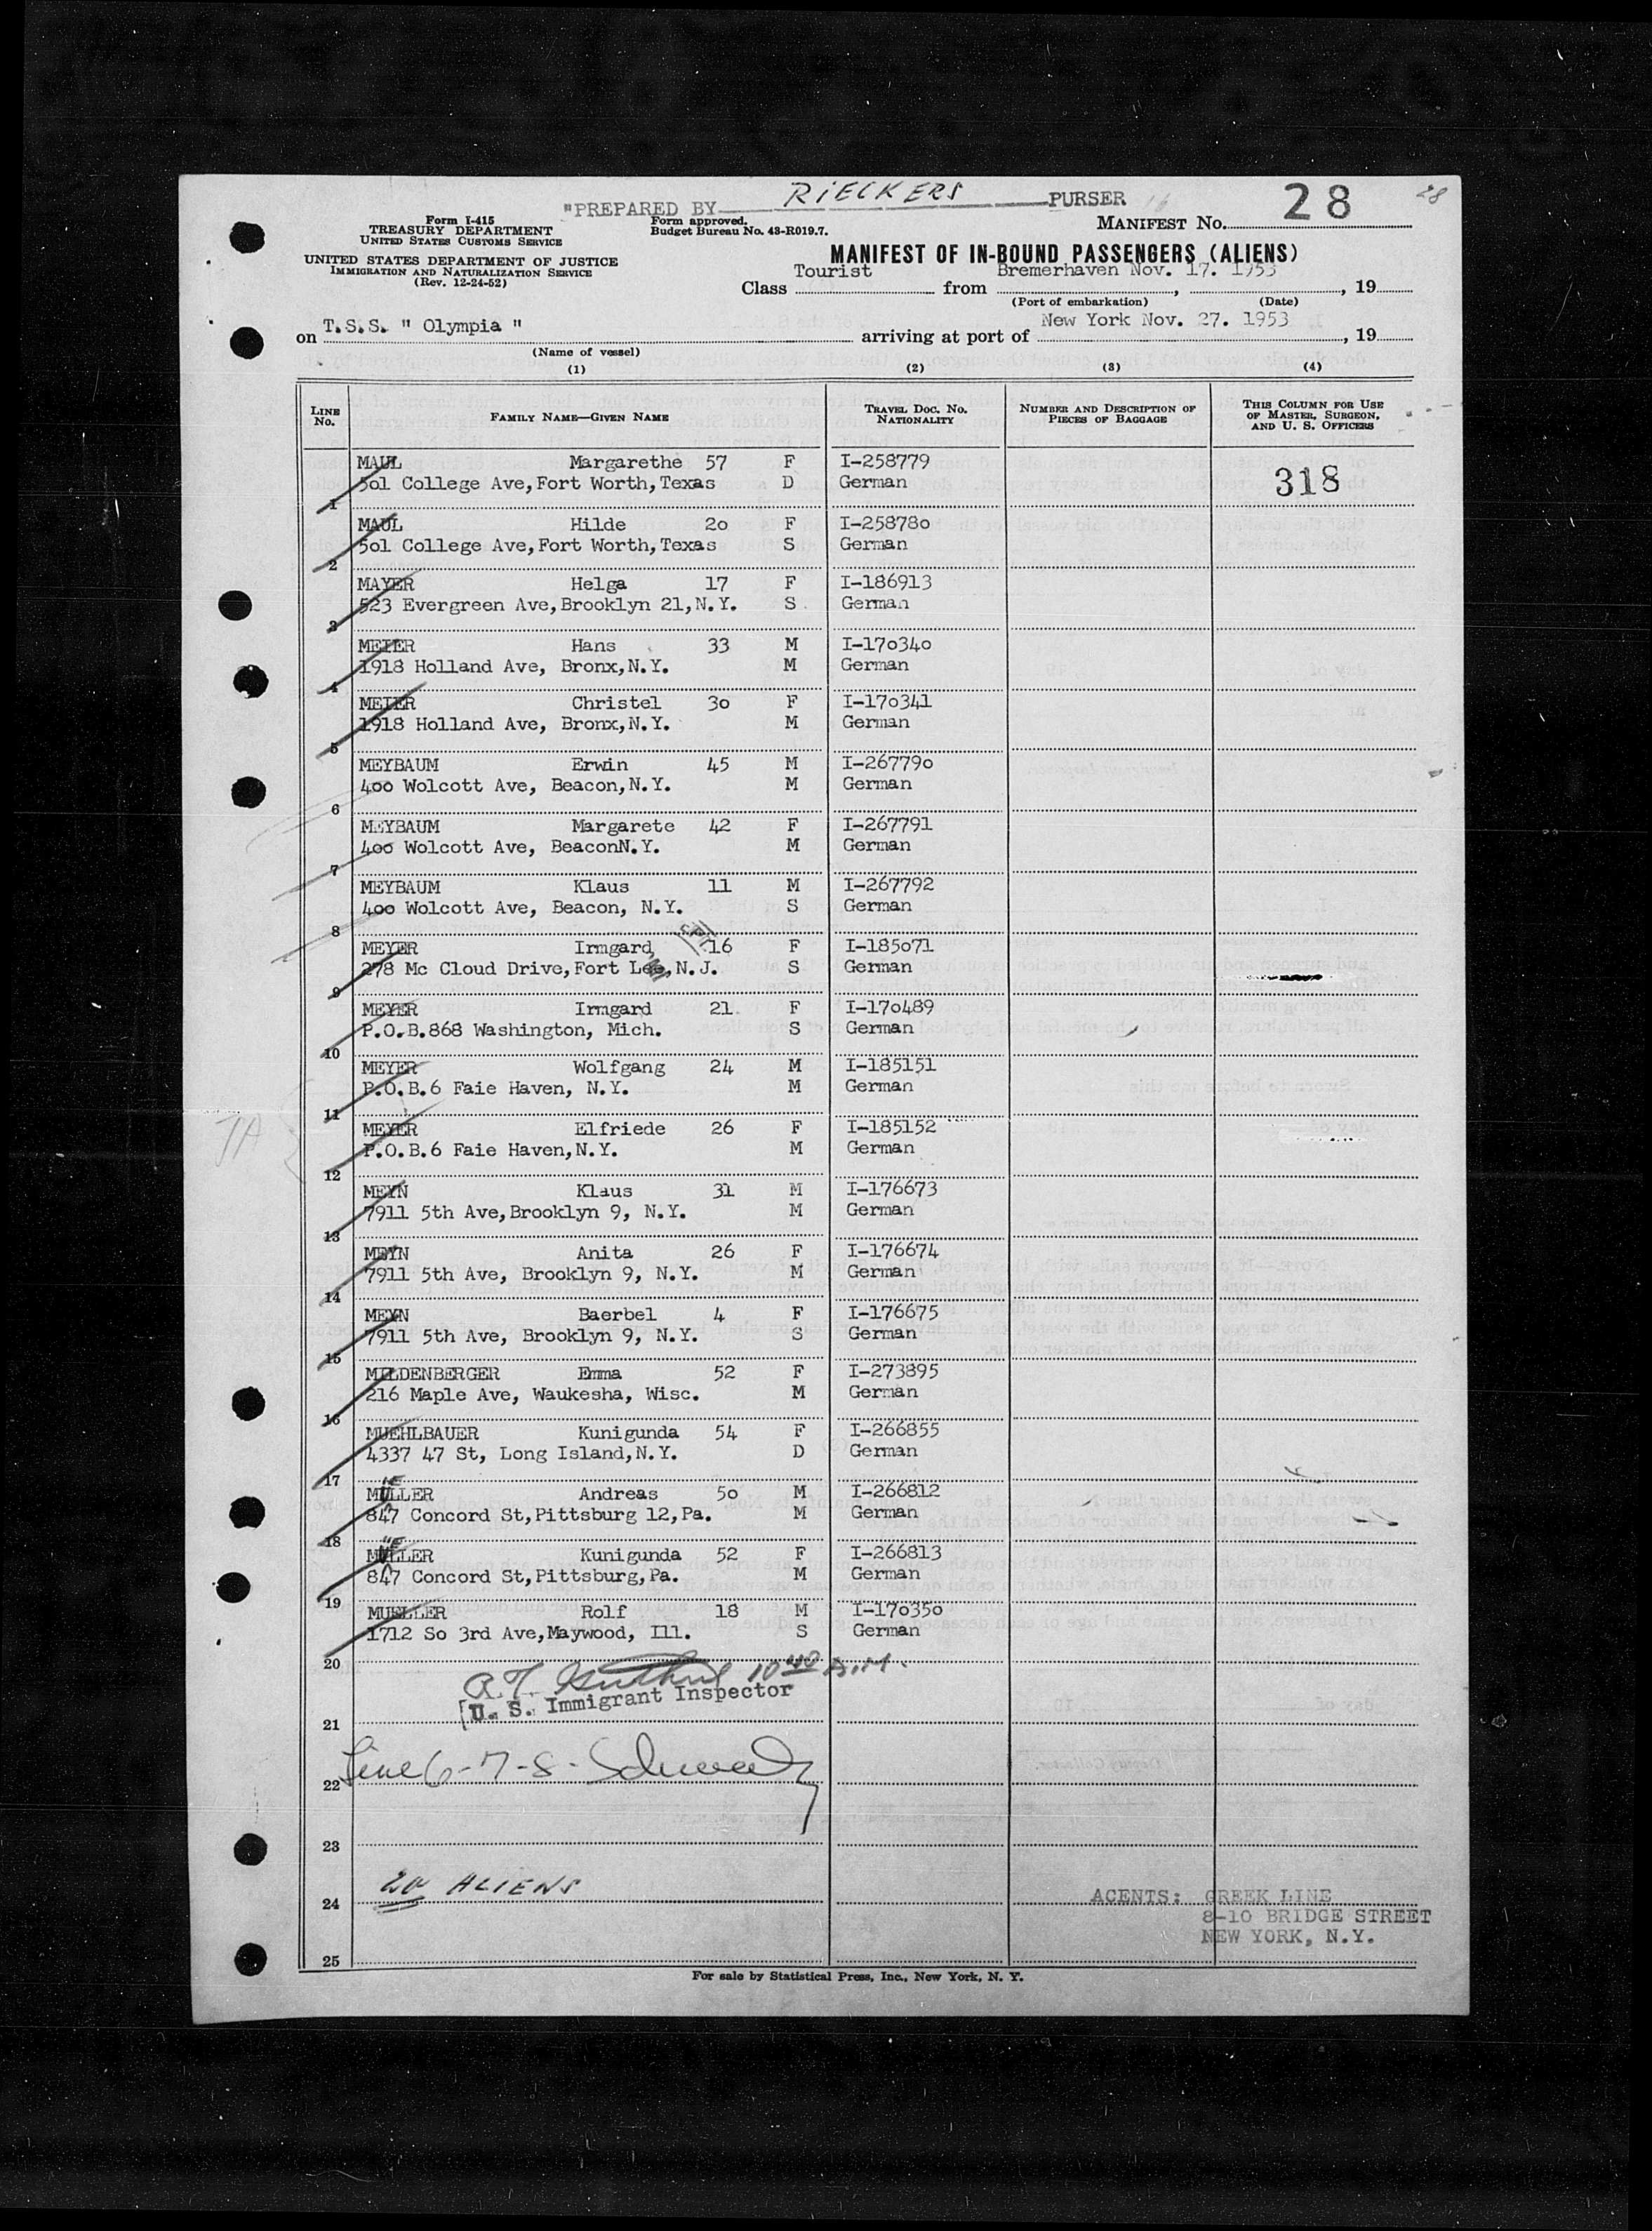 "PREPARED BY RIECKERS PURSER
28
28
Form I-415
TREASURY DEPARTMENT
UNITED STATES CUSTOMS SERVICE
Form approved.
Budget Bureau No. 43-R019.7.
MANIFEST No.
UNITED STATES DEPARTMENT OF JUSTICE
IMMIGRATION AND NATURALIZATION SERVICE
(Rev. 12-24-52)
MANIFEST OF IN-BOUND PASSENGERS (ALIENS)
Class Tourist from Bremerhaven Nov. 17. 1953, 19
(Port of embarkation) (Date)
on T.S.S. " Olympia " arriving at port of New York Nov. 27. 1953, 19
(Name of vessel)
(1) (2) (3) (4)
LINE No. FAMILY NAME—GIVEN NAME TRAVEL DOC. No. NATIONALITY NUMBER AND DESCRIPTION OF PIECES OF BAGGAGE THIS COLUMN FOR USE OF MASTER, SURGEON, AND U. S. OFFICERS
MAUL Margarethe 57 F I-258779
318
1 5o1 College Ave,Fort Worth,Texas D German
MAUL Hilde 2o F I-25878o
2 5o1 College Ave,Fort Worth,Texas S German
MAYER Helga 17 F I-186913
3 523 Evergreen Ave,Brooklyn 21,N.Y. S German
MEIER Hans 33 M I-17o34o
4 1918 Holland Ave, Bronx,N.Y. M German
MEIER Christel 3o F I-17o341
5 1918 Holland Ave, Bronx,N.Y. M German
MEYBAUM Erwin 45 M I-26779o
6 4oo Wolcott Ave, Beacon,N.Y. M German
MEYBAUM Margarete 42 F I-267791
7 4oo Wolcott Ave, BeaconN.Y. M German
MEYBAUM Klaus 11 M I-267792
8 4oo Wolcott Ave, Beacon, N.Y. S German
MEYER Irmgard 16 F I-185o71
9 278 Mc Cloud Drive,Fort Lee,N.J. S German
MEYER Irmgard 21 F I-17o489
10 P.O.B.868 Washington, Mich. S German
MEYER Wolfgang 24 M I-185151
11 P.O.B.6 Faie Haven, N.Y. M German
MEYER Elfriede 26 F I-185152
12 P.O.B.6 Faie Haven,N.Y. M German
MEYN Klaus 31 M I-176673
13 7911 5th Ave,Brooklyn 9, N.Y. M German
MEYN Anita 26 F I-176674
14 7911 5th Ave, Brooklyn 9, N.Y. M German
MEYN Baerbel 4 F I-176675
15 7911 5th Ave, Brooklyn 9, N.Y. S German
MILDENBERGER Emma 52 F I-273895
16 216 Maple Ave, Waukesha, Wisc. M German
MUEHLBAUER Kunigunda 54 F I-266855
17 4337 47 St, Long Island,N.Y. D German
MUELLER Andreas 5o M I-266812
18 847 Concord St,Pittsburg 12,Pa. M German
MUELLER Kunigunda 52 F I-266813
19 847 Concord St,Pittsburg,Pa. M German
MUELLER Rolf 18 M I-17o35o
20 1712 So 3rd Ave,Maywood, Ill. S German
10 40 A.M.
U. S. Immigrant Inspector
21
Line 6-7-8-
22
23
24 20 ALIENS
AGENTS: GREEK LINE
8-10 BRIDGE STREET
NEW YORK, N.Y.
25
For sale by Statistical Press, Inc., New York, N. Y.